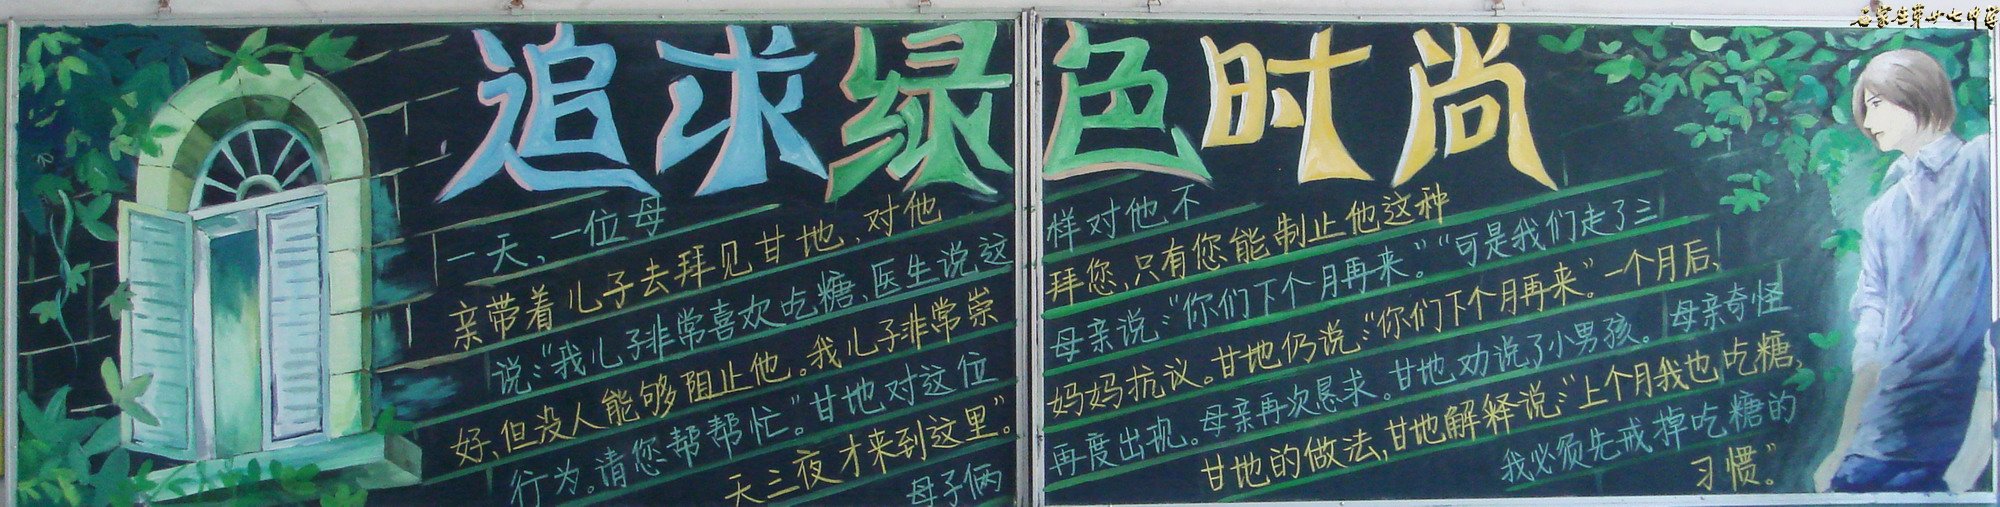 石家庄第廿七中学
追求绿色时尚
一天,一位母
亲带着儿子去拜见甘地,对他
说:“我儿子非常喜欢吃糖,医生说这样对他不
好,但没人能够阻止他。我儿子非常崇拜您,只有您能制止他这种
行为。请您帮帮忙”甘地对这位母亲说:“你们下个月再来。”“可是我们走了三
天三夜才来到这里。”妈妈抗议。甘地仍说:“你们下个月再来”。一个月后,
母子俩再度出现。母亲再次恳求。甘地劝说了小男孩。母亲奇怪
甘地的做法,甘地解释说:“上个月我也吃糖,
我必须先戒掉吃糖的
习惯。”